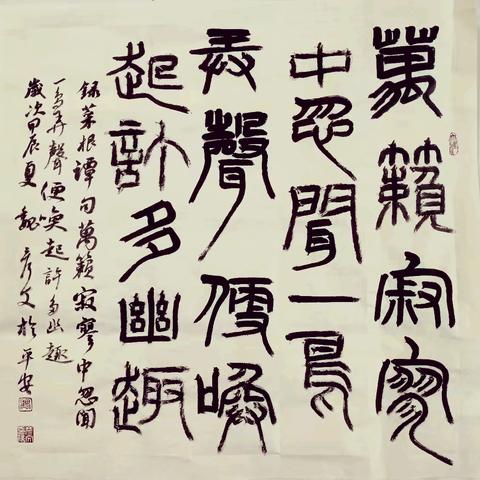 萬籟寂寥
中忽聞一鳥
弄聲便喚
起許多幽趣
錄菜根譚句萬籟寂寥中忽聞
一鳥弄聲便喚起許多幽趣
歲次甲辰夏 魏彥文於平安